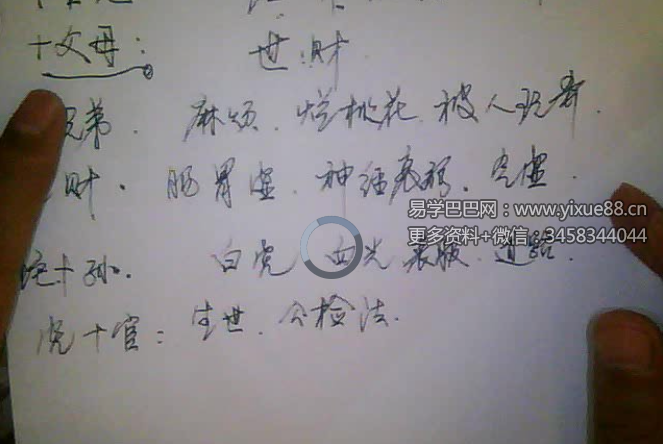 十父母： 世.财
兄弟. 麻烦. 烂桃花. 被人玩弄.
财. 肠胃虚. 神经衰弱. 空虚.
易学巴巴网：www.yixue88.cn
更多资料+微信：3458344044
蛇十孙. 白虎 血光 衣服. 道路.
虎十官：生世. 公检法.